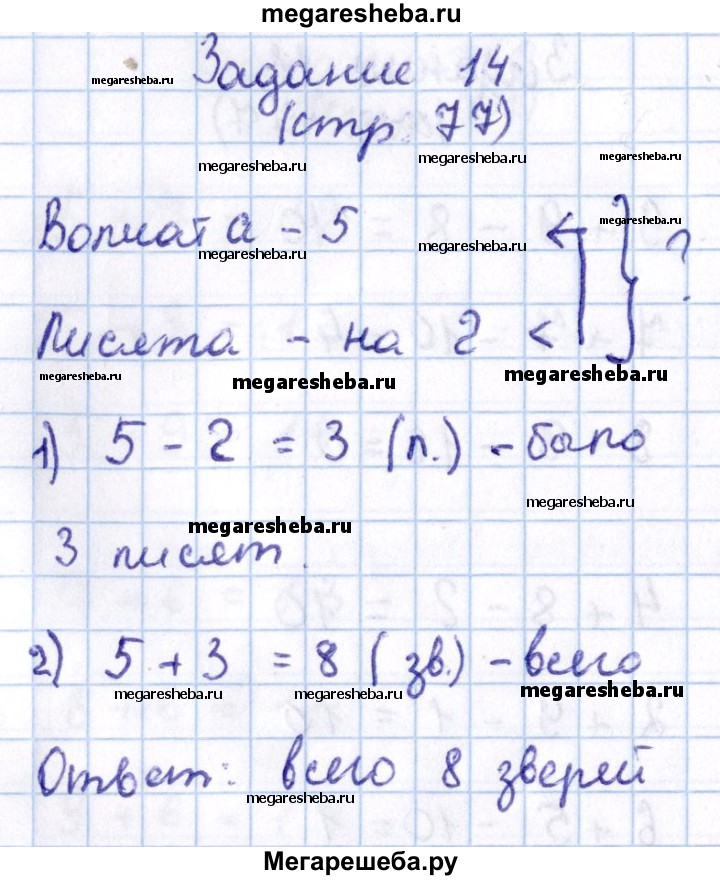 megaresheba.ru
Задание 14
megaresheba.ru
(стр 77)
megaresheba.ru megaresheba.ru megaresheba.ru
Волчата - 5 ← } ?
megaresheba.ru
megaresheba.ru megaresheba.ru
Лисята - на 2 <
megaresheba.ru megaresheba.ru megaresheba.ru
1) 5 - 2 = 3 (л.) - было
megaresheba.ru
megaresheba.ru
3 лисят.
2) 5 + 3 = 8 (зв.) - всего
megaresheba.ru megaresheba.ru megaresheba.ru
Ответ: всего 8 зверей
megaresheba.ru
Мегарешеба.ру